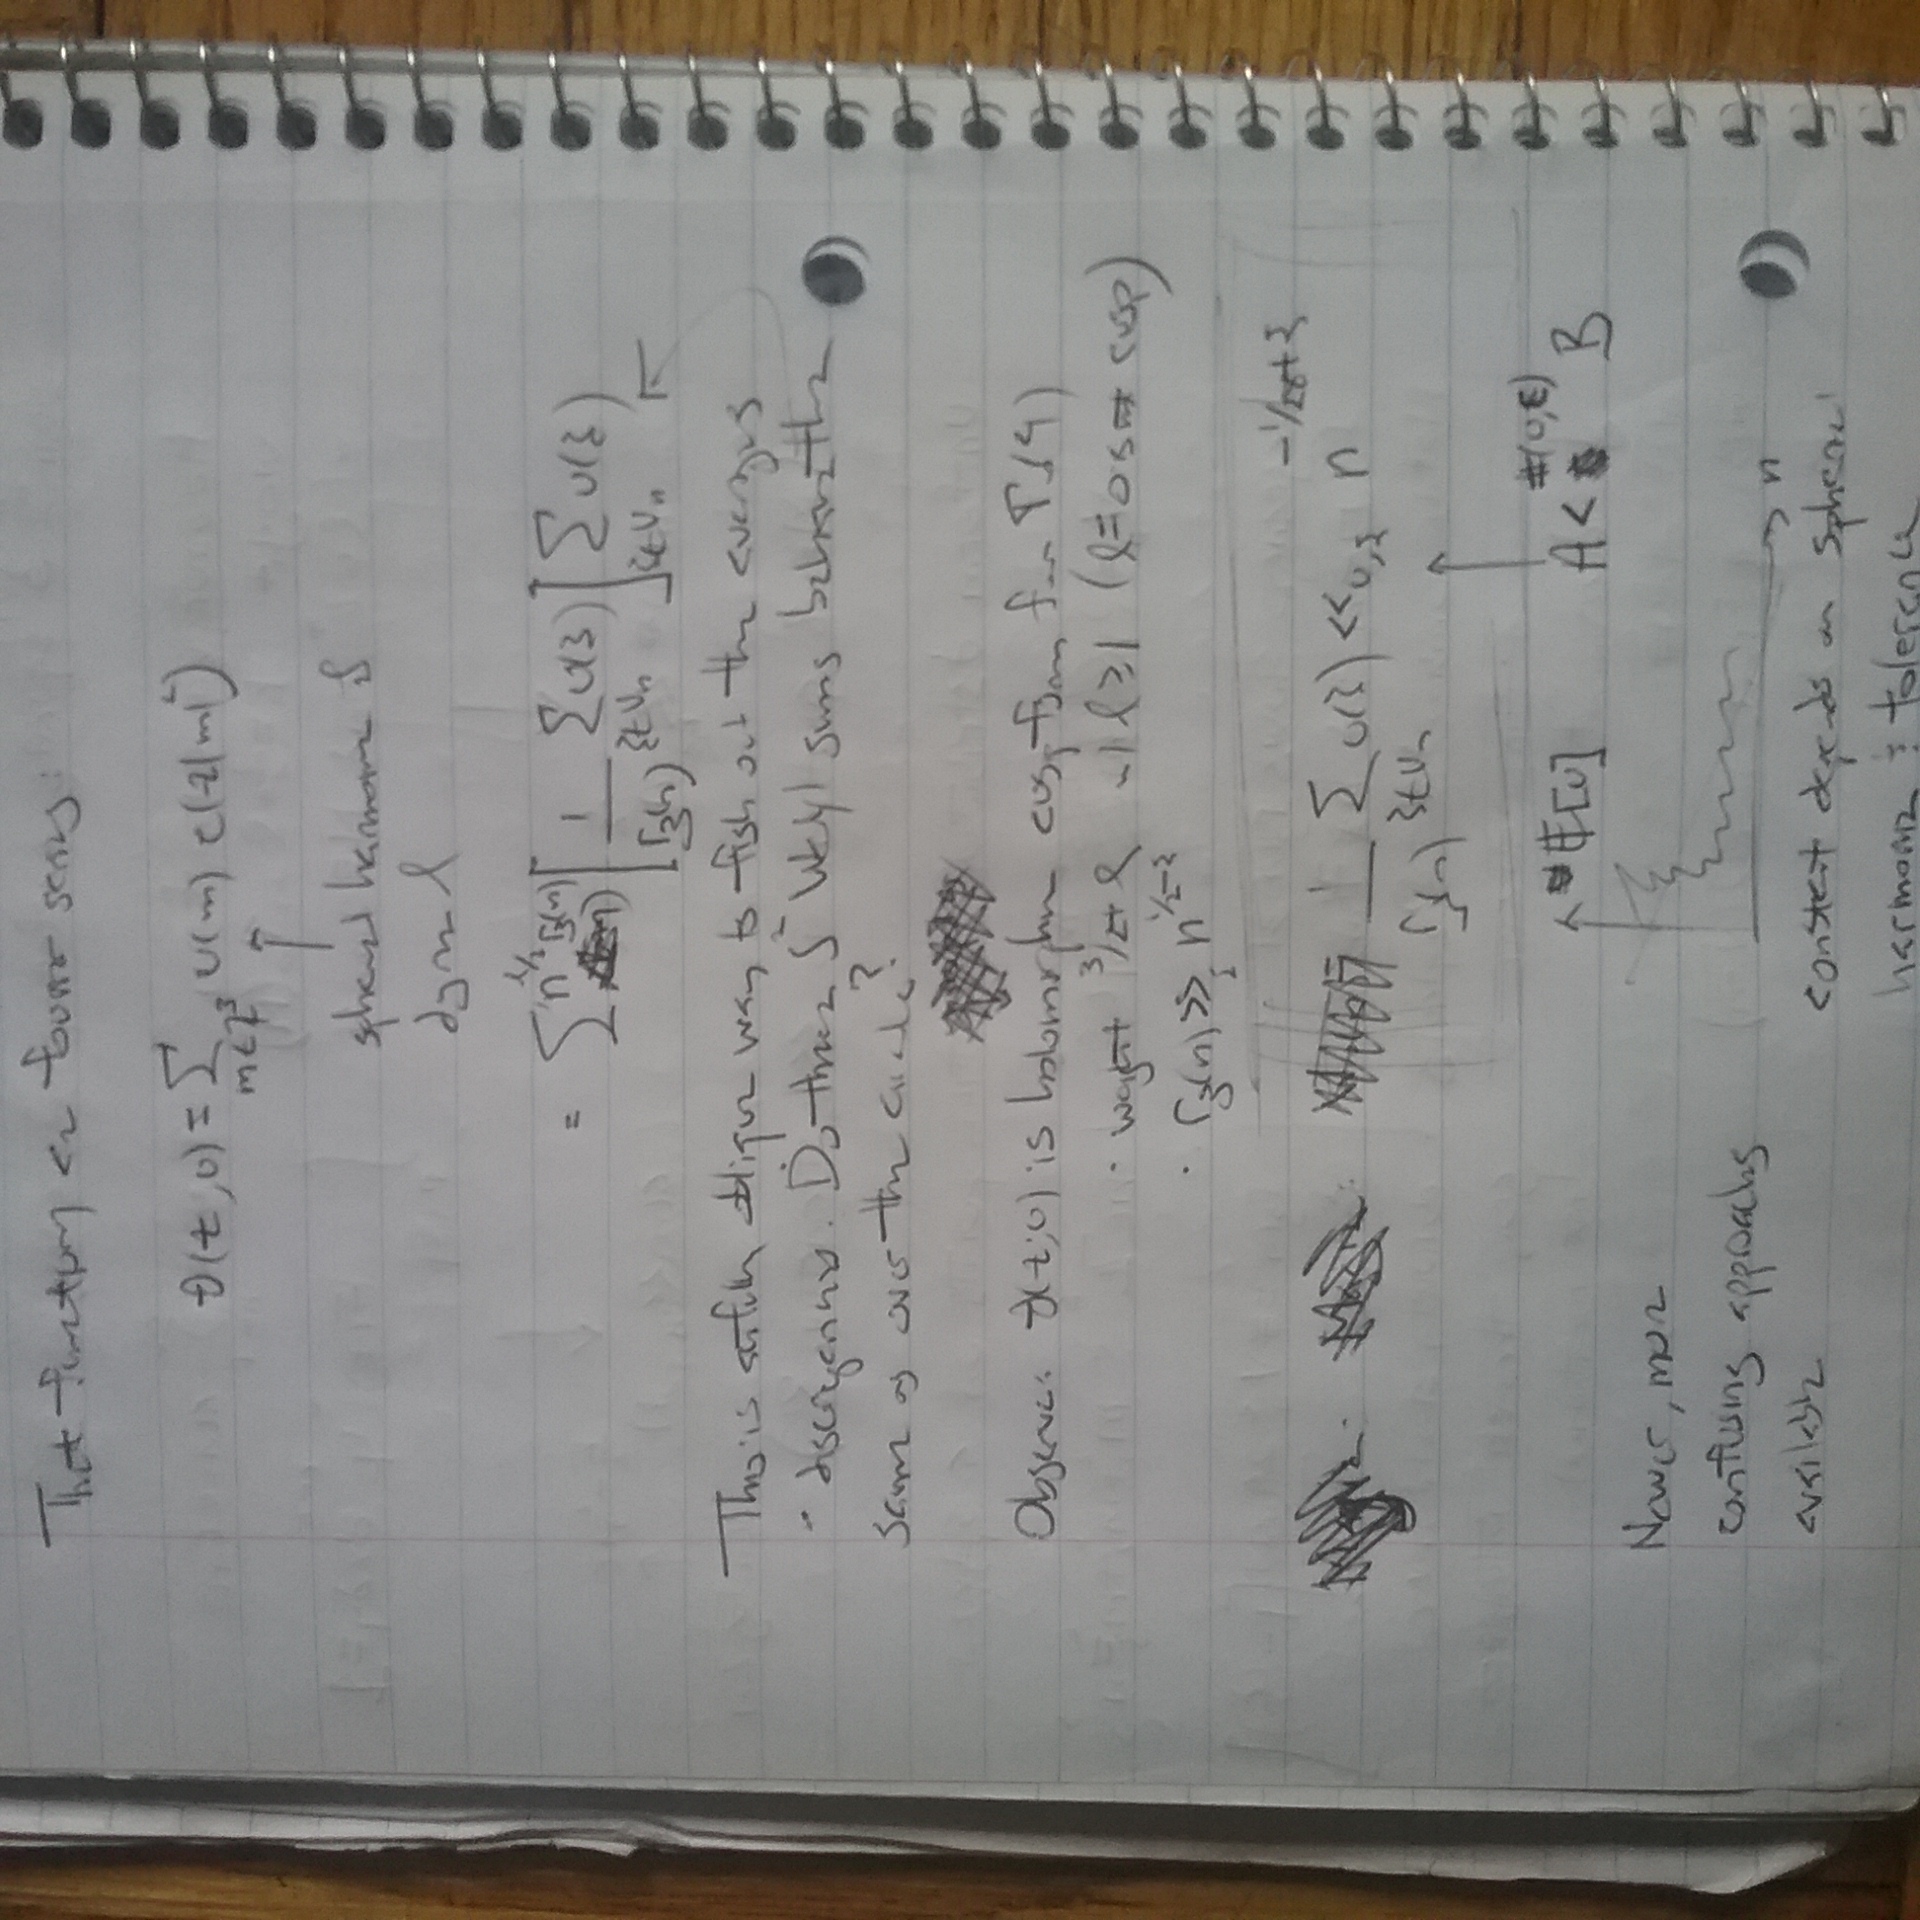 Theta functions as Fourier series:
θ(z, u) = Σ_{m∈Z³} u(m) e(z|m|²)
↑
spherical harmonic of
degree l
= Σ n^{l/2} r₃(n) [ 1/r₃(n) Σ_{ξ∈V_n} u(ξ) ] Σ_{ξ∈V_n} u(ξ)
This is oblique way to fish out the averages
discrepancies. Do these S² Weyl sums behave the
same as over the circle?
Observe: θ(z; u) is holomorphic cusp form for Γ₀(4)
· weight 3/2 + l w/ l ≥ 1 (l = 0 is not cusp)
· r₃(n) ≫_ε n^{1/2-ε}
1/r₃(n) Σ_{ξ∈V_n} u(ξ) ≪_{u,ε} n^{-1/28+ε}
↑
E[u]
A < #(u,ε) B
Newer, more
confusing approaches
available
n
constant depends on spherical
harmonic & tolerance